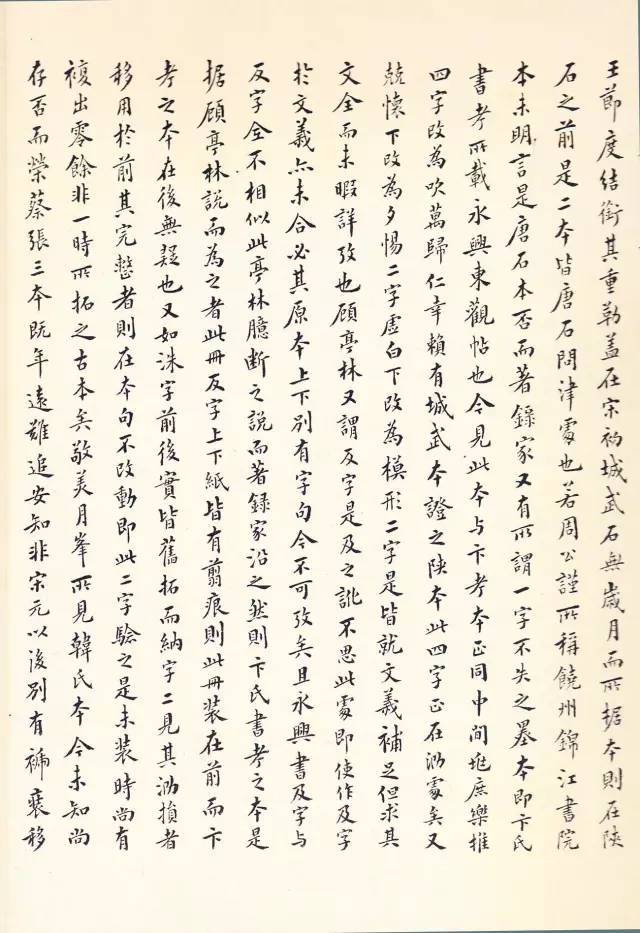 王節度結銜其重勒盖在宋初城武石無歲月而所据本則在陝
石之前是二本皆唐石問津處也若周公謹所稱饒州錦江書院
本未明言是唐石本否而著錄家又有所謂一字不失之墨本即卞氏
書考所載永興東觀帖也今見此本与卞考本正同中間𡉏庶樂推
四字改為吹萬歸仁幸賴有城武本證之陝本此四字正在泐處矣又
兢懷下改為夕惕二字虛白下改為模形二字是皆就文義補足但求其
文全而未暇詳攷也顧亭林又謂反字是及之訛不思此處即使作及字
於文義亦未合必其原本上下別有字句今不可攷矣且永興書及字与
反字全不相似此亭林臆断之說而著録家沿之然則卞氏書考之本是
据顧亭林說而為之者此冊反字上下紙皆有翦痕則此冊装在前而卞
考之本在後無疑也又如洙字前後實皆舊拓而納字二見其泐損者
移用於前其完整者則在本句不改動即此二字驗之是未装時尚有
複出零餘非一時所拓之古本矣敬美月峯所見韓氏本今未知尚
存否而榮蔡張三本既年遠難追安知非宋元以後別有裱褻移